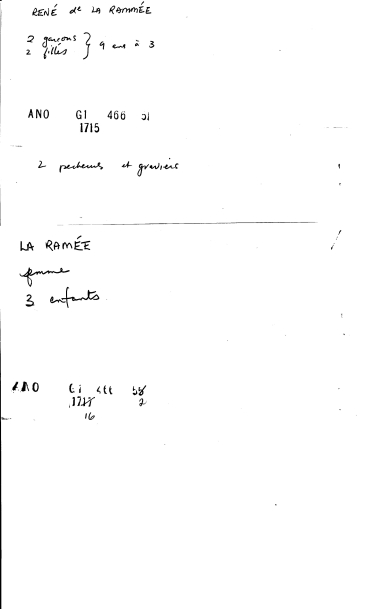 RENÉ de LA RAMMÉE
2 garçons
2 filles } 9 ans à 3
ANO G1 466
1715
2 pecheurs et graviers
LA RAMÉE
femme
3 enfants
ANO G1 466
16 2